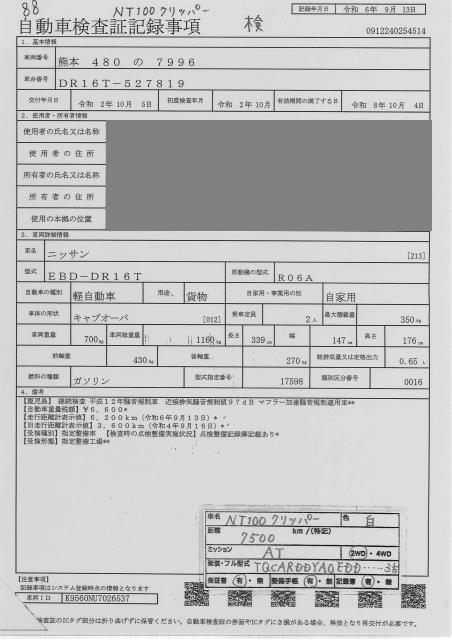 88 NT100クリッパー 検
記録年月日 令和 6年 9月 13日
自動車検査証記録事項
0912240254514
1．基本情報
車両番号 熊本 480 の 7996
車台番号 DR16T-527819
交付年月日 令和 2年 10月 5日 初度検査年月 令和 2年 10月 有効期間の満了する日 令和 8年 10月 4日
2．使用者・所有者情報
使用者の氏名又は名称
使用者の住所
所有者の氏名又は名称
所有者の住所
使用の本拠の位置
3．車両詳細情報
車名 ニッサン [213]
型式 EBD-DR16T 原動機の型式 R06A
自動車の種別 軽自動車 用途 貨物 自家用・事業用の別 自家用
車体の形状 キャブオーバ [012] 乗車定員 2人 最大積載量 350kg
車両重量 700kg 車両総重量 1160kg 長さ 339cm 幅 147cm 高さ 176cm
前軸重 430kg 後軸重 270kg 総排気量又は定格出力 0.65L
燃料の種類 ガソリン 型式指定番号 17598 類別区分番号 0016
4．備考
【鹿児島】 継続検査 平成12年騒音規制車 近接排気騒音規制値97dB マフラー加速騒音規制適用車**
【自動車重量税額】¥6,600*
【走行距離計表示値】6,200km（令和6年9月13日）*
【旧走行距離計表示値】3,600km（令和4年9月16日）*
【受検種別】指定整備車 【検査時の点検整備実施状況】点検整備記録簿記載あり*
【受検形態】指定整備工場**
車名 NT100クリッパー 色 白
距離 7500 km/(特記)
ミッション AT 2WD・4WD
保証書 有・無 整備手帳 有・無 記録簿 有・無
【注意事項】
記録事項はシステム登録時点の情報となります
車両ID K9560NU7026537
検査証のICタグ部分は折り曲げずに保管ください。自動車検査証の券面やICタグにき損がある場合、無効となり再交付が必要です。